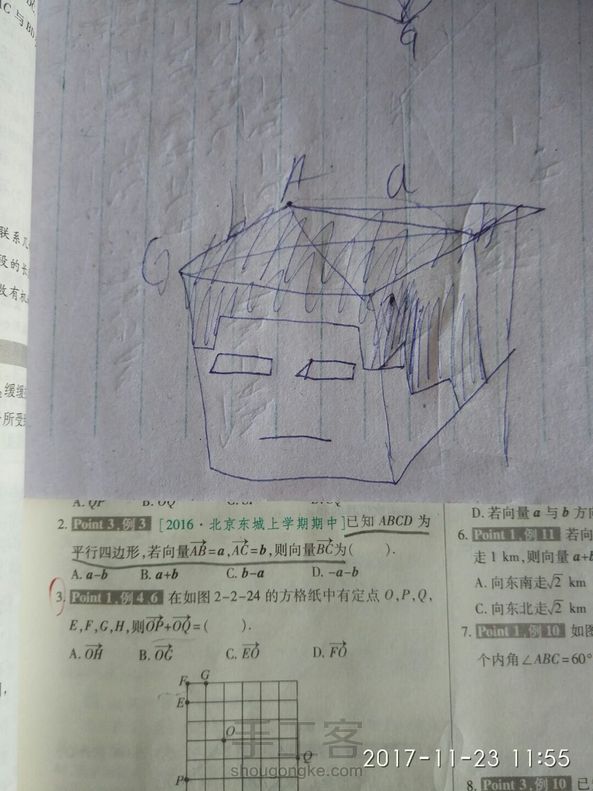 G
A
a
G
A. QP B. OQ
2. Point 3,例3 [2016·北京东城上学期期中]已知 ABCD 为
平行四边形,若向量AB=a,AC=b,则向量BC为( ).
A. a-b B. a+b C. b-a D. -a-b
3. Point 1,例4、6 在如图 2-2-24 的方格纸中有定点 O,P,Q,
E,F,G,H,则OP+OQ=( ).
A. OH B. OG C. EO D. FO
F G
E
O
Q
P
D. 若向量 a 与 b 方向
6. Point 1,例11 若向
走 1 km,则向量 a+b
A. 向东南走√2 km
C. 向东北走√2 km
7. Point 1,例10 如图
个内角∠ABC=60°
8. Point 3,例10 已
手工客
shougongke.com
2017-11-23 11:55